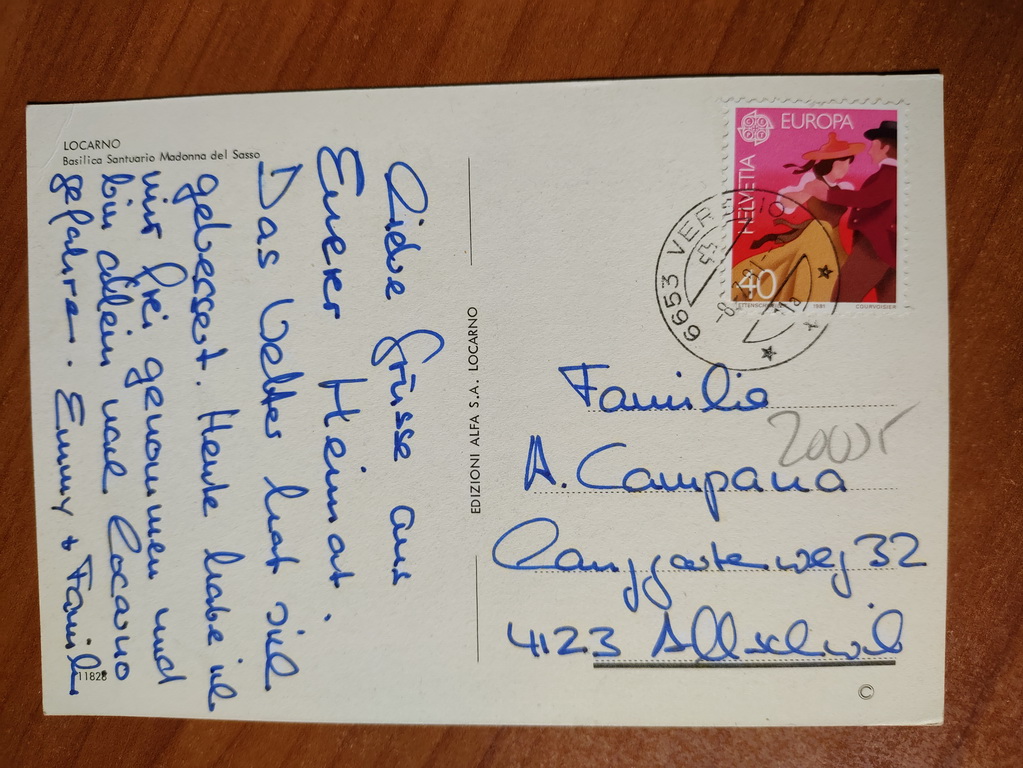 LOCARNO
Basilica Santuario Madonna del Sasso
Liebe Grüsse aus
Eurer Heimat.
Das Wetter hat sich
gebessert. Heute habe ich
mir frei genommen und
bin allein nach Locarno
gefahren. Emmy + Famili
11828
EDIZIONI ALFA S.A. LOCARNO
EUROPA
HELVETIA
40
1981
COURVOISIER
6653 VER
Familie
A. Campana
Langgartenweg 32
4123 Allschwil
©